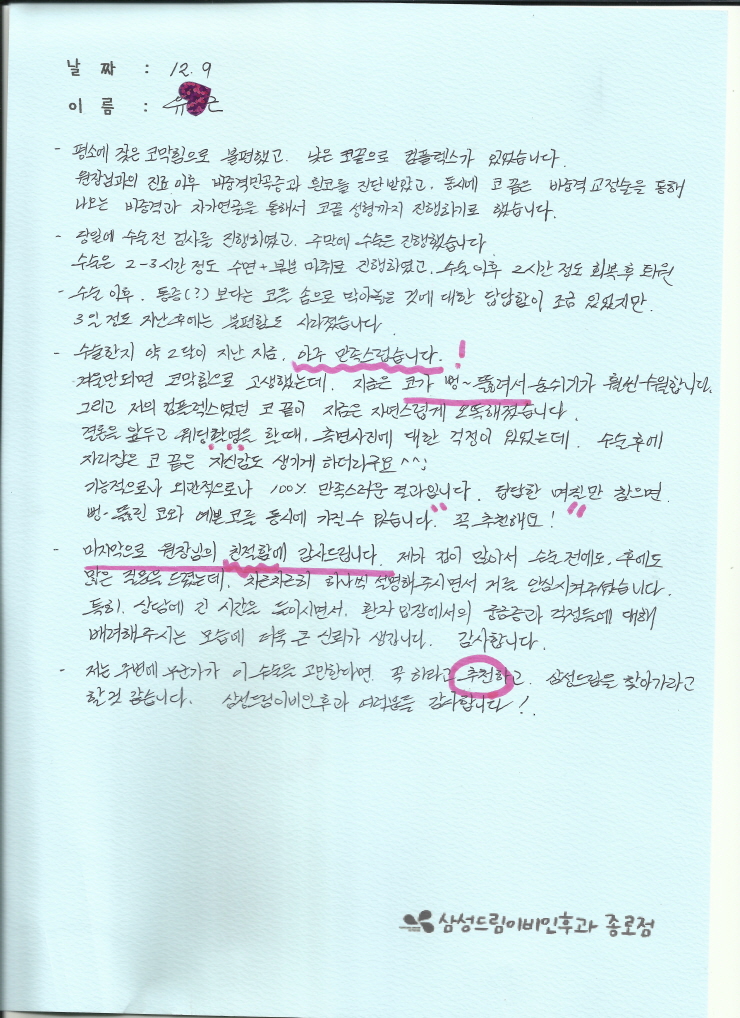 날 짜 : 12. 9
이 름 : 유
- 평소에 잦은 코막힘으로 불편했고, 낮은 코끝으로 컴플렉스가 있었습니다.
원장님과의 진료 이후 비중격만곡증과 휜코를 진단 받았고, 동시에 코 끝은 비중격 교정술을 통해
나오는 비중격과 자가연골을 통해서 코끝 성형까지 진행하기로 했습니다.
- 당일에 수술 전 검사를 진행하였고, 주말에 수술은 진행했습니다.
수술은 2-3시간 정도 수면+부분 마취로 진행하였고, 수술 이후 2시간 정도 회복 후 퇴원
- 수술 이후, 통증(?) 보다는 코를 솜으로 막아놓은 것에 대한 답답함이 조금 있었지만,
3일 정도 지난 후에는 불편함도 사라졌습니다.
- 수술한지 약 2달이 지난 지금, 아주 만족스럽습니다.!
겨울만되면 코막힘으로 고생했는데, 지금은 코가 뻥~ 뚫려서 숨쉬기가 훨씬 수월합니다.
그리고 저의 컴플렉스였던 코 끝이 지금은 자연스럽게 오똑해졌습니다.
결혼을 앞두고 웨딩촬영을 할때, 측면사진에 대한 걱정이 있었는데, 수술후에
자리잡은 코 끝은 자신감도 생기게 하더라구요^^;
기능적으로나 외관적으로나 100% 만족스러운 결과입니다. 답답한 며칠만 참으면,
뻥~ 뚫린 코와 예쁜코를 동시에 가질 수 있습니다." 꼭 추천해요!"
- 마지막으로 원장님의 친절함에 감사드립니다. 제가 겁이 많아서 수술 전에도, 후에도
많은 질문을 드렸는데, 차근차근히 하나씩 설명해주시면서 저를 안심시켜주셨습니다.
특히, 상담에 긴 시간을 들이시면서, 환자 입장에서의 궁금증과 걱정들에 대해
배려해주시는 모습에 더욱 큰 신뢰가 생깁니다. 감사합니다.
- 저는 주변에 누군가가 이 수술을 고민한다면, 꼭 하라고 추천하고, 삼성드림을 찾아가라고
할것 같습니다. 삼성드림이비인후과 여러분들 감사합니다!
삼성드림이비인후과 종로점